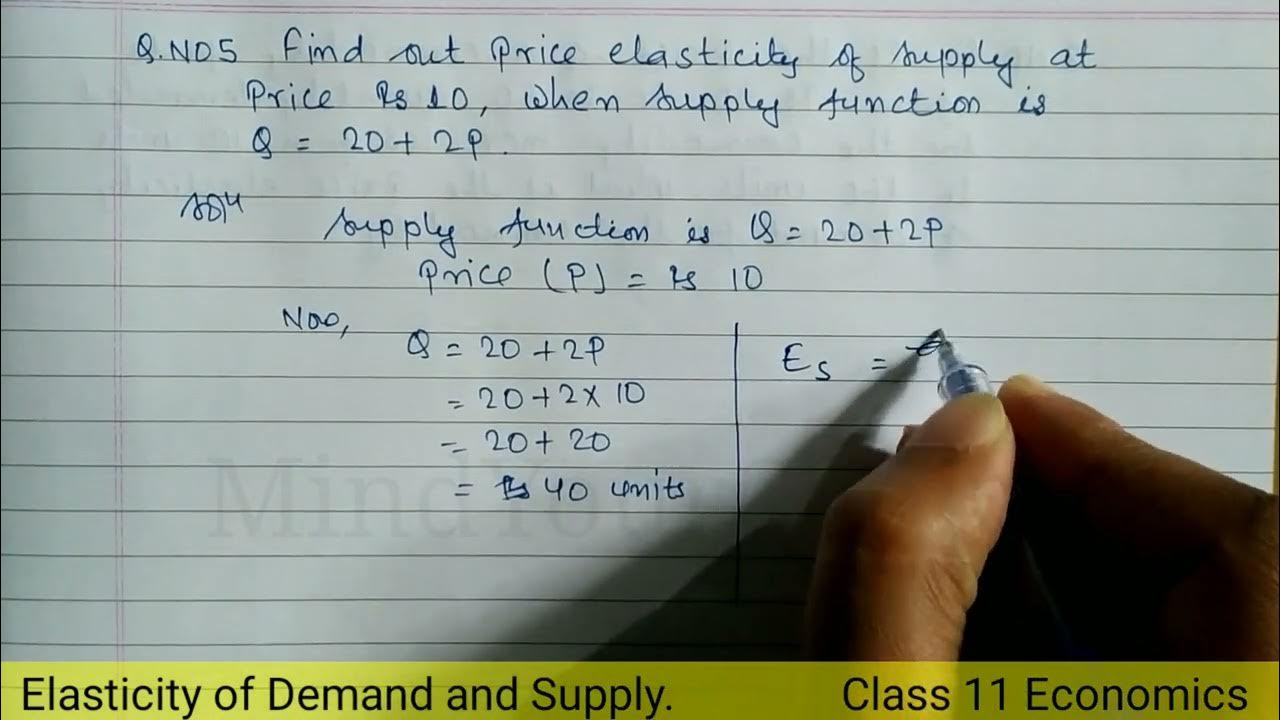 Q.NO5 Find out Price elasticity of supply at
Price Rs 10, when supply function is
Q = 20 + 2P.
Solⁿ
supply function is Q = 20 + 2P
Price (P) = Rs 10
Now,
Q = 20 + 2P
= 20 + 2 × 10
= 20 + 20
= 40 units
Es =
MindYour
Elasticity of Demand and Supply. Class 11 Economics